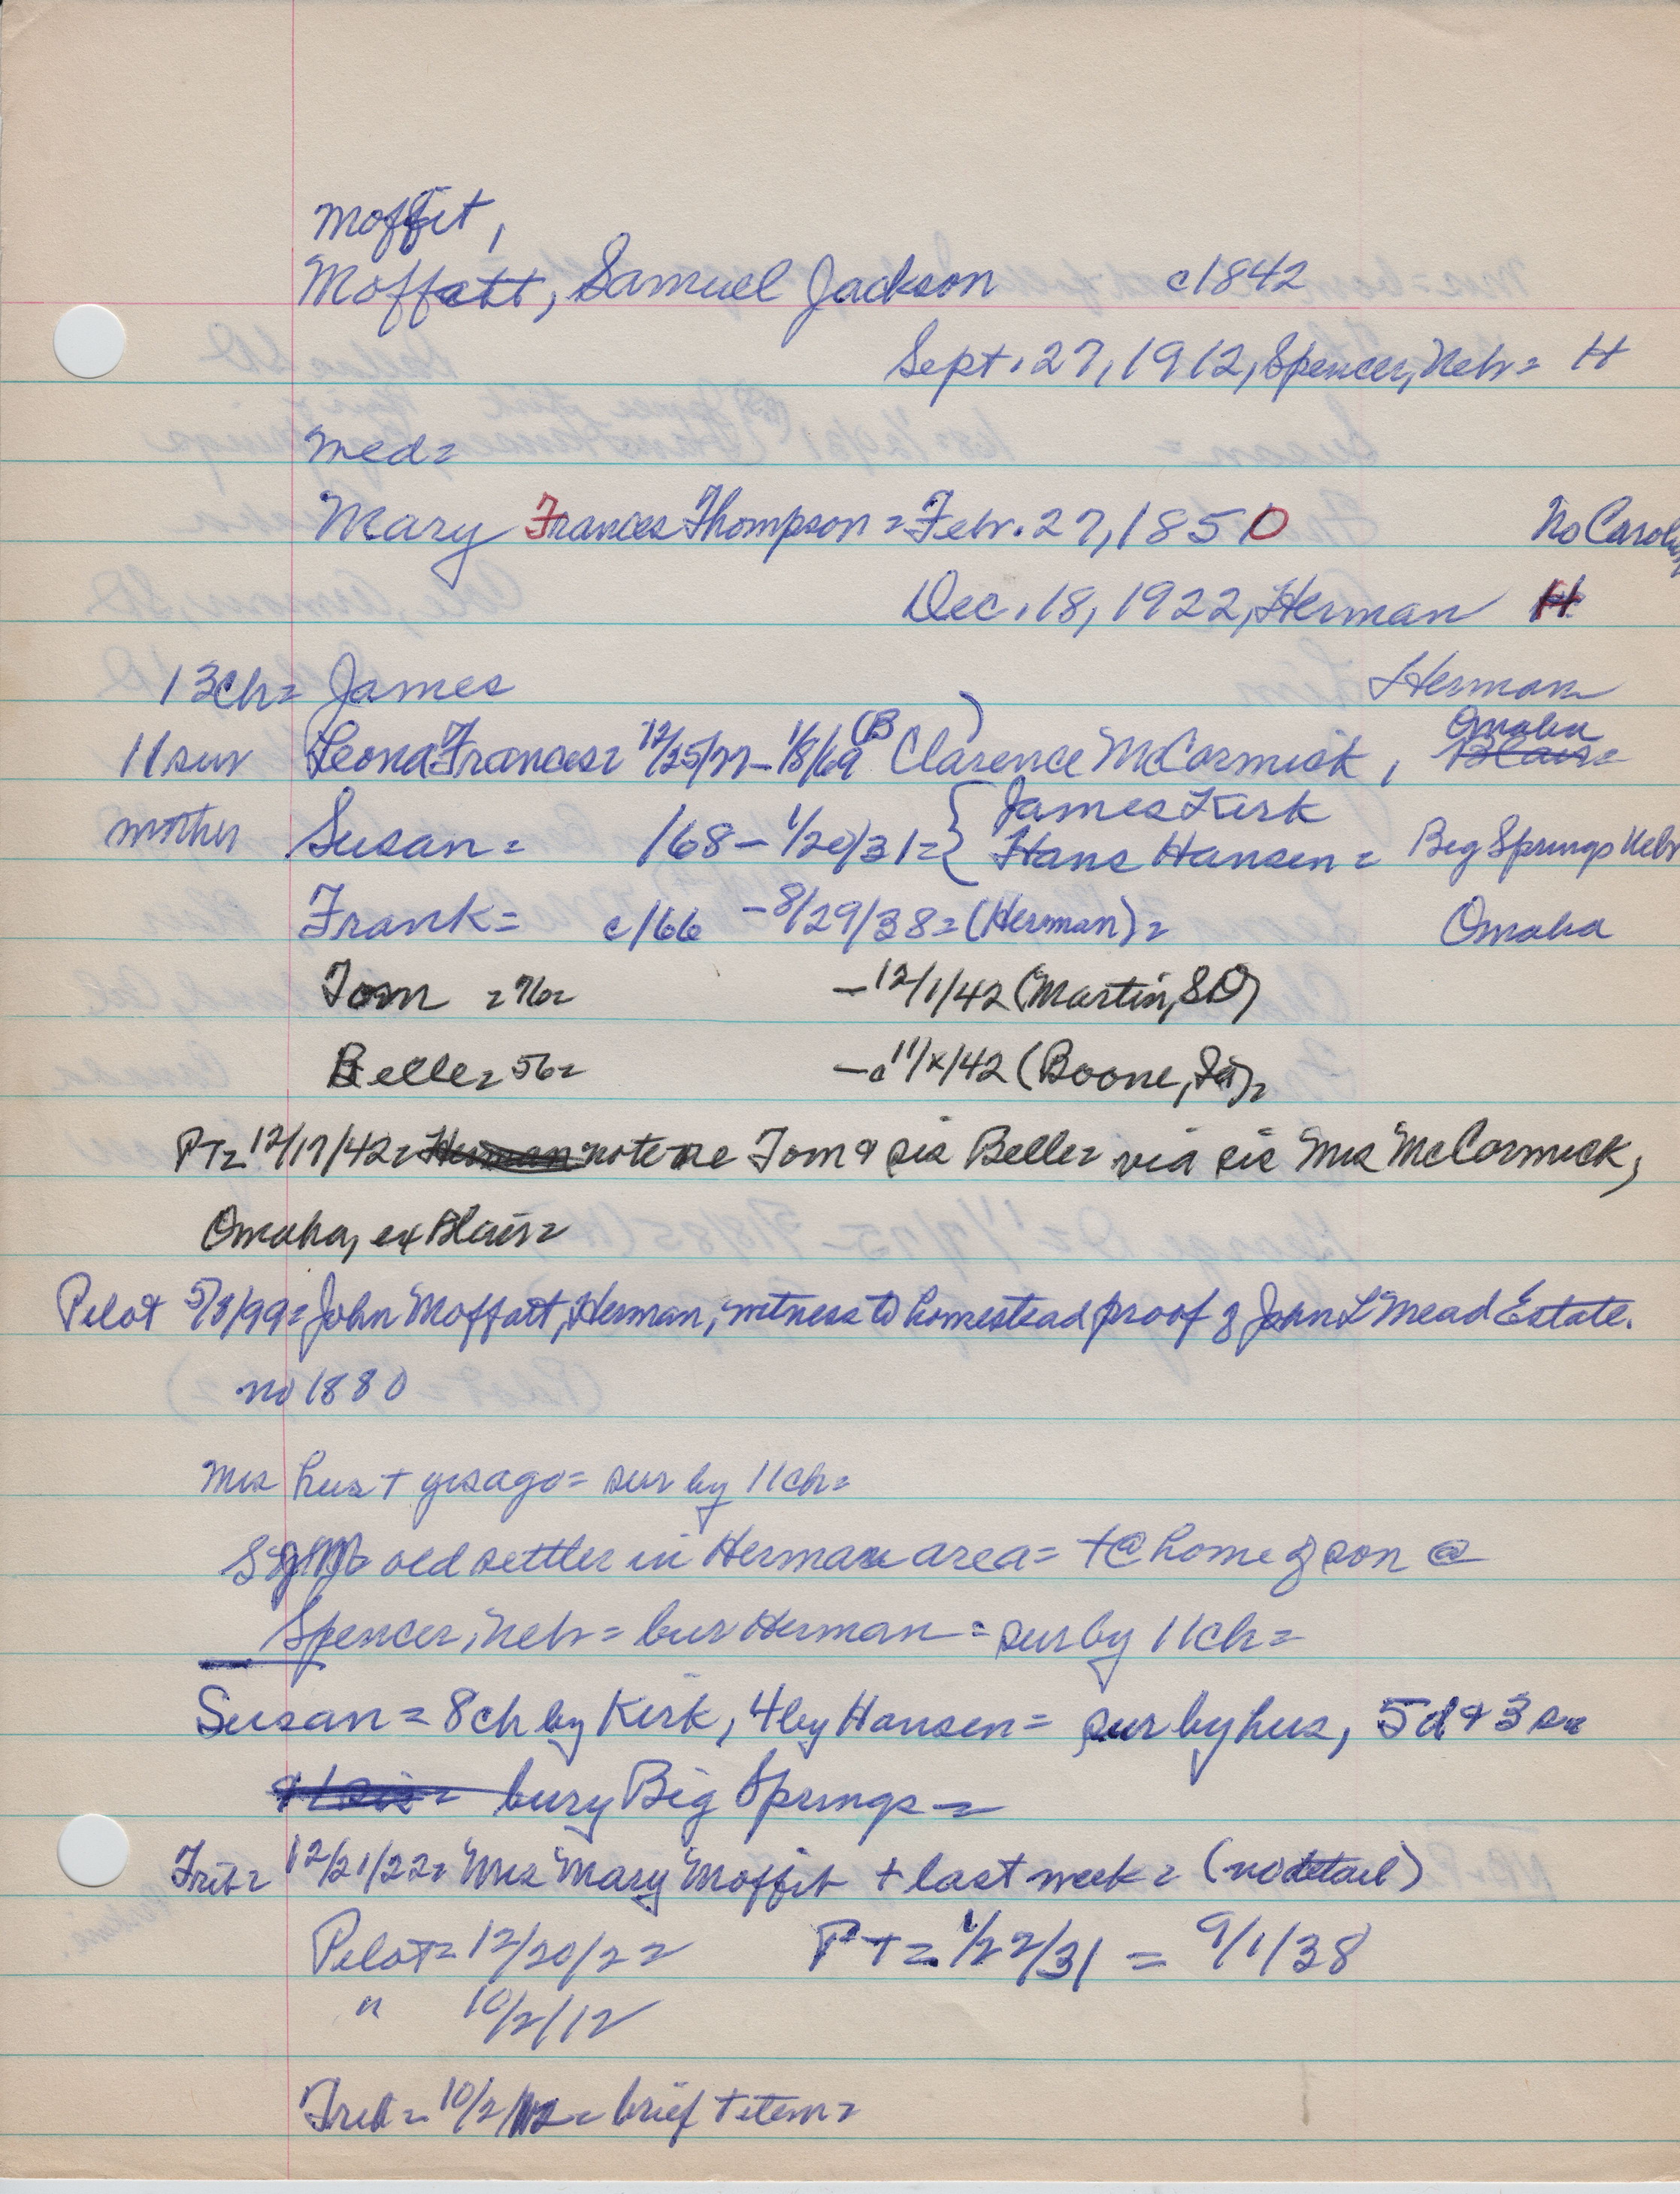 Moffit,
Moffatt, Samuel Jackson c1842
Sept. 27, 1912, Spencer, Nebr= H
med=
Mary Frances Thompson = Febr. 27, 1850 No Carolina
Dec. 18, 1922, Herman H
13ch= James Herman
11 sur Leona Frances= 12/25/77 - 1/8/69 (B) Clarence McCormick, Omaha Blair=
mother Susan= /68 - 1/20/31 = { James Kirk
Hans Hansen = Big Springs Nebr
Frank= c/66 - 8/29/38 = (Herman) = Omaha
Tom = 76= - 12/1/42 (Martin, SD)
Belle = 56= - c 11/x/42 (Boone, Ia)=
PT= 12/17/42= Herman note re Tom & sis Belle= via sis Mrs McCormick,
Omaha, ex Blair=
Pilot 5/3/99= John Moffatt, Herman, witness to homestead proof of John L Mead Estate.
no 1880
Mrs hus + yrs ago = sur by 11 ch=
old settler in Herman area= +@ home of son @
Spencer, Nebr = bur Herman = sur by 11 ch=
Susan = 8 ch by Kirk, 4 by Hansen = sur by hus, 5d & 3s
bury Big Springs =
Trib= 12/21/22= Mrs Mary Moffit + last week = (no detail)
Pilot= 12/20/22 PT= 1/22/31 = 9/1/38
" 10/2/12
Trib = 10/2/12 = brief + item=